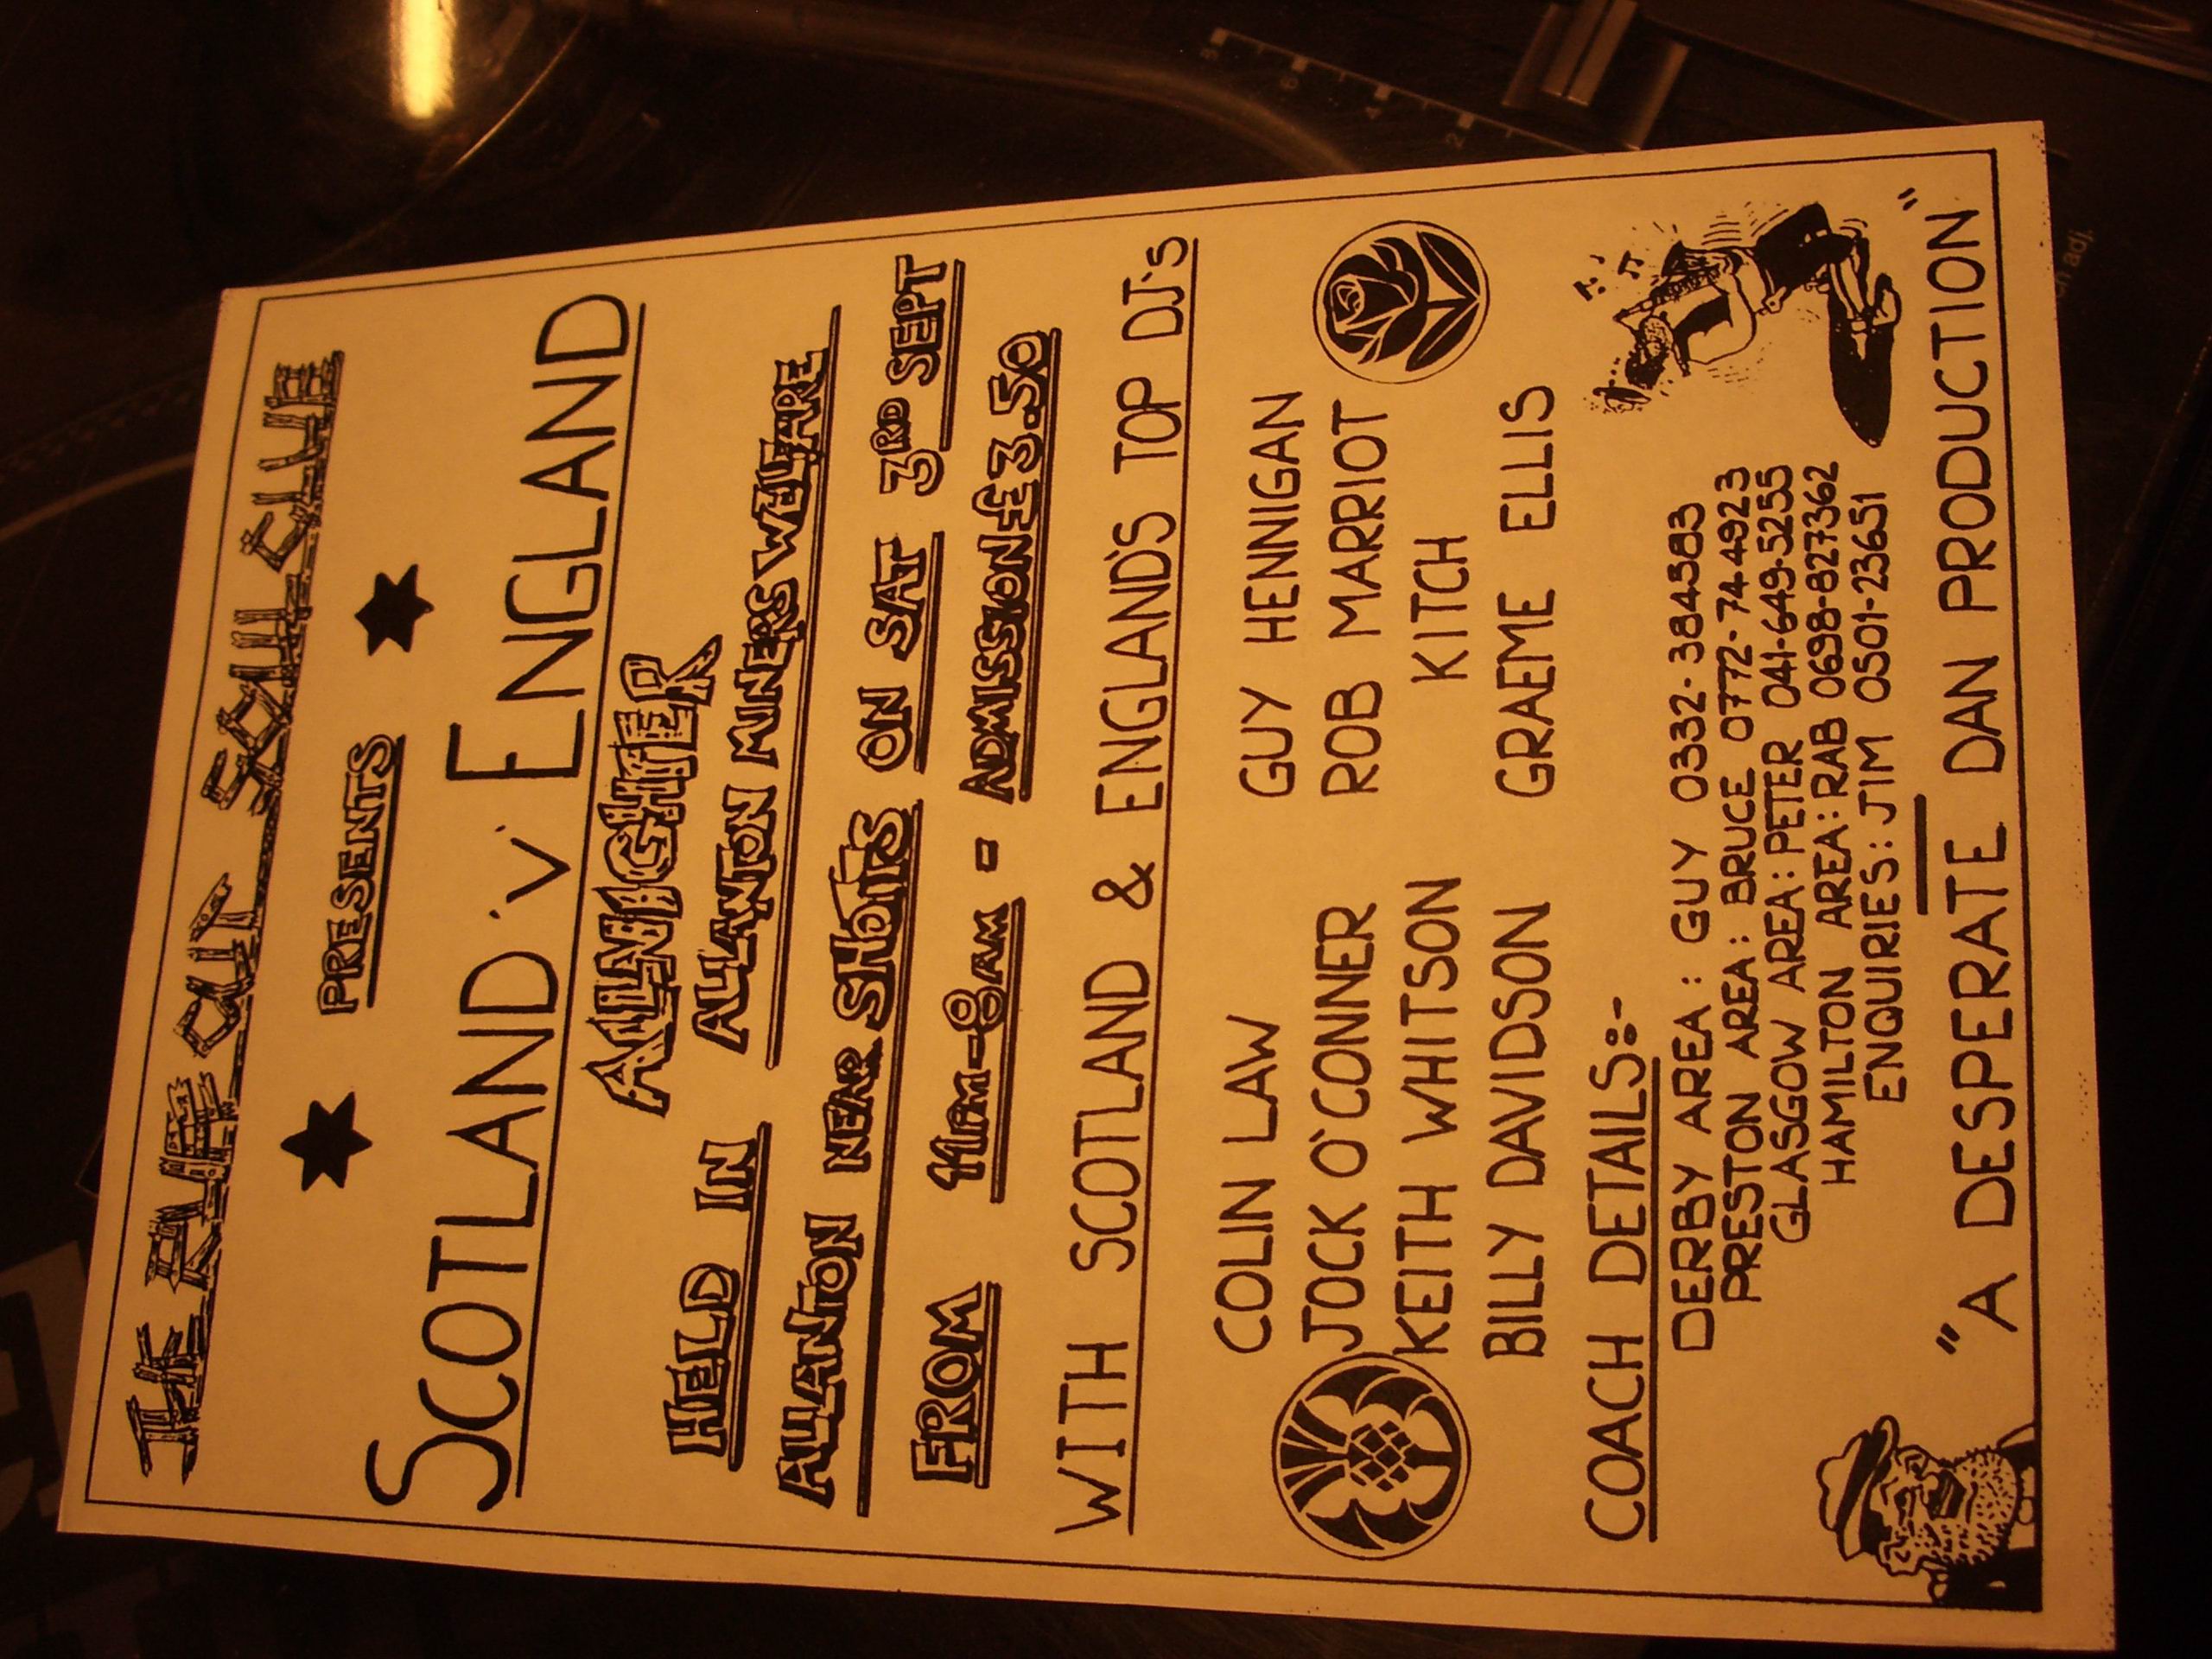 THE ARE OUT SOUL CLUB
PRESENTS
SCOTLAND 'V' ENGLAND
ALLNIGHTER
HELD IN ALLANTON MINERS WELFARE
ALLANTON NEAR SHOTTS ON SAT 3RD SEPT
FROM 11PM-8AM - ADMISSION £3.50
WITH SCOTLAND & ENGLAND'S TOP DJ's
COLIN LAW GUY HENNIGAN
JOCK O'CONNER ROB MARRIOT
KEITH WHITSON KITCH
BILLY DAVIDSON GRAEME ELLIS
COACH DETAILS:-
DERBY AREA: GUY 0332-384583
PRESTON AREA: BRUCE 0772-744923
GLASGOW AREA: PETER 041-649-5255
HAMILTON AREA: RAB 0698-827362
ENQUIRIES: JIM 0501-23651
"A DESPERATE DAN PRODUCTION"